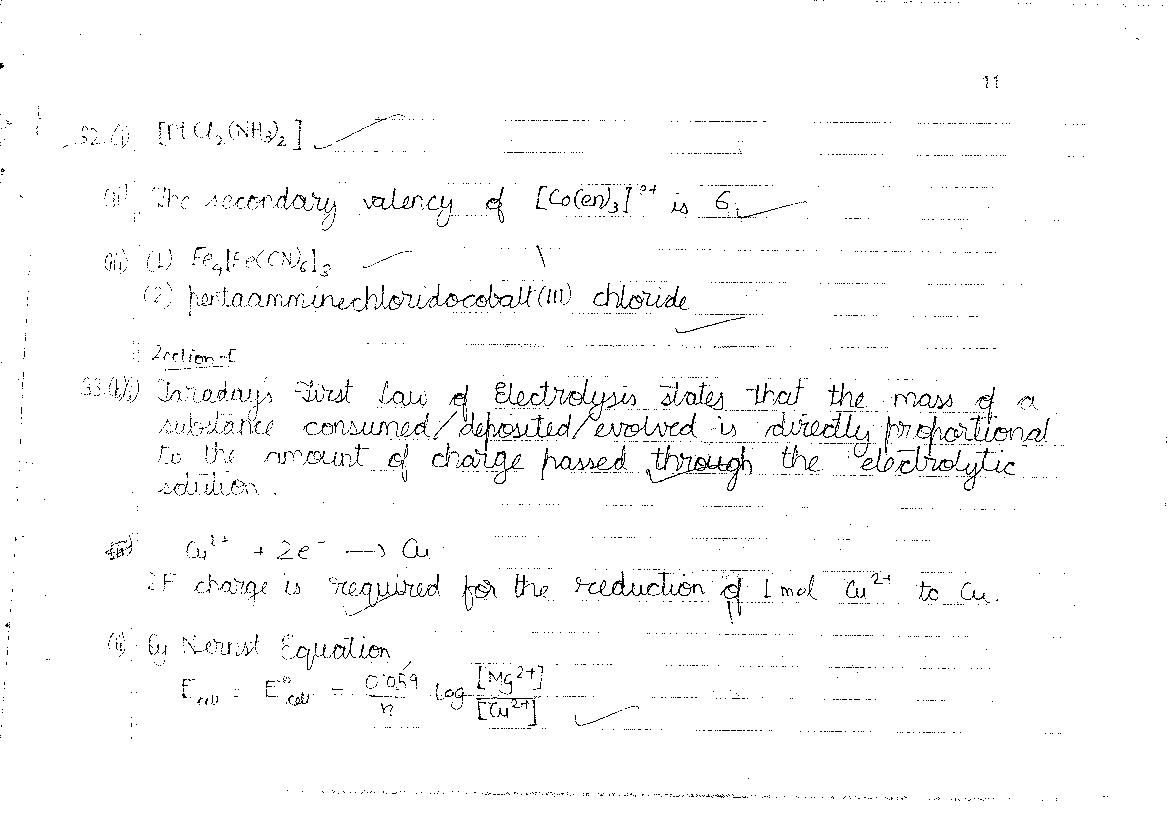 11
32.(i) [PtCl₂(NH₃)₂]
(ii) The secondary valency of [Co(en)₃]³⁺ is 6.
(iii) (1) Fe₄[Fe(CN)₆]₃
(2) pentaamminechloridocobalt(III) chloride
Section-E
33.(i) Faraday's First Law of Electrolysis states that the mass of a
substance consumed/deposited/evolved is directly proportional
to the amount of charge passed through the electrolytic
solution.
Cu²⁺ + 2e⁻ → Cu
2F charge is required for the reduction of 1 mol Cu²⁺ to Cu.
(ii) By Nernst Equation,
E cell = E° cell − 0.059/n log [Mg²⁺]/[Cu²⁺]